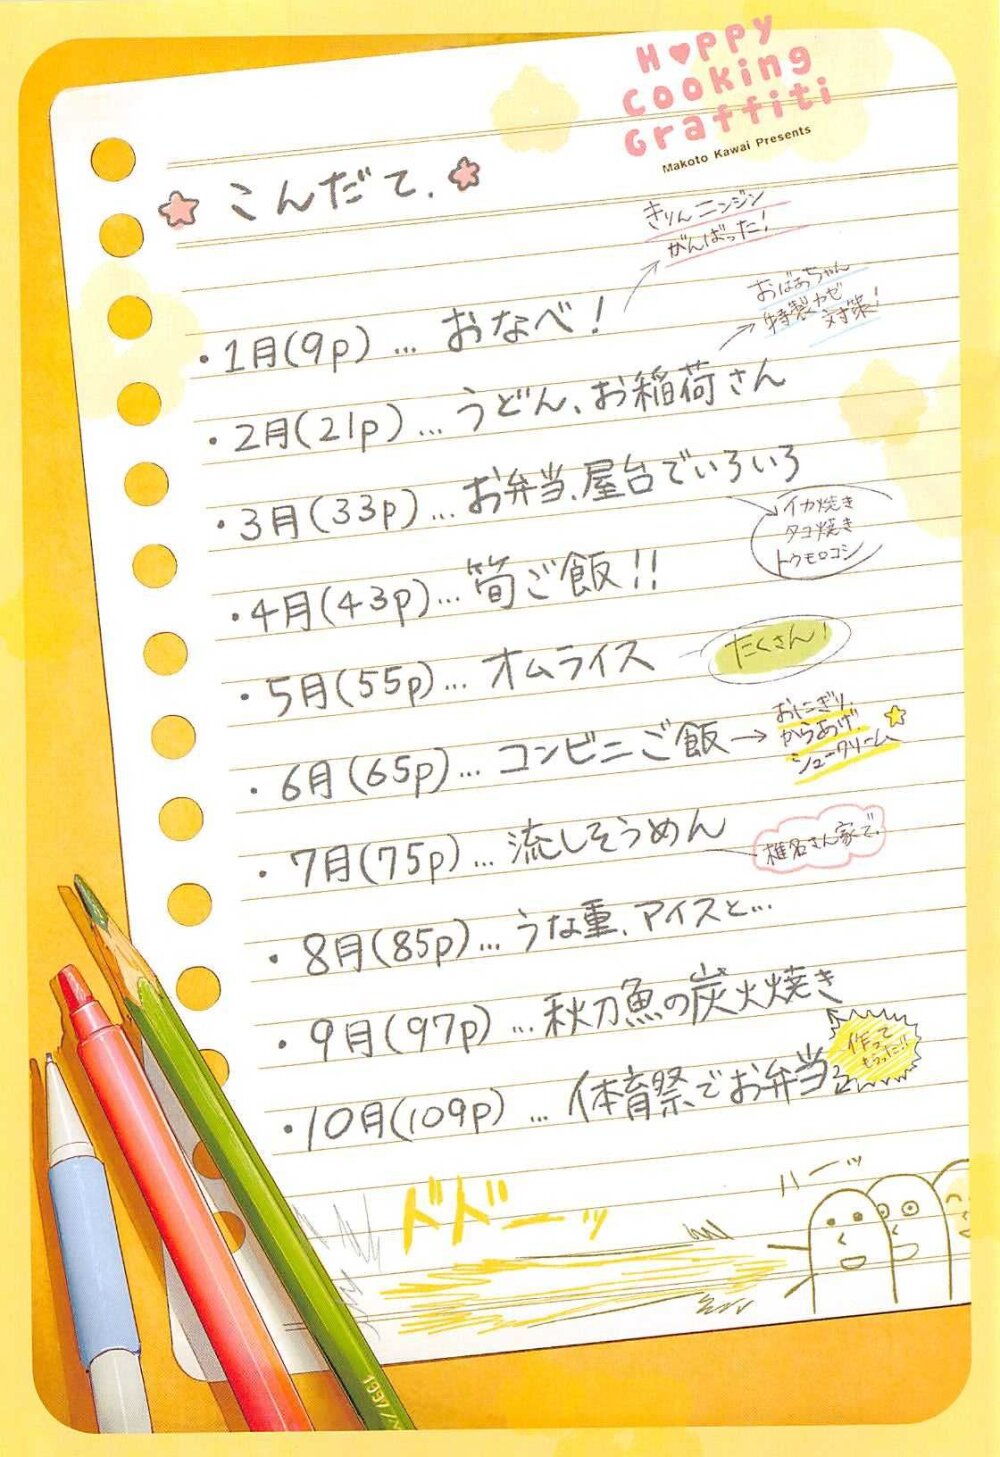 H♥ppy
Cooking
Graffiti
Makoto Kawai Presents
☆こんだて.☆
きりんニンジン
がんばった!
・1月(9p)…おなべ!
おばあちゃん
特製カゼ
対策!
・2月(21p)…うどん、お稲荷さん
・3月(33p)…お弁当、屋台でいろいろ
イカ焼き
タコ焼き
トウモロコシ
・4月(43p)…筍ご飯!!
・5月(55p)…オムライス
たくさん!
・6月(65p)…コンビニご飯→
おにぎり、
からあげ、
シュークリーム☆
・7月(75p)…流しそうめん
椎名さん家で。
・8月(85p)…うな重、アイスと…
・9月(97p)…秋刀魚の炭火焼き
・10月(109p)…体育祭でお弁当
作って
もらった!!
ドドーッ
ハーッ
1997/